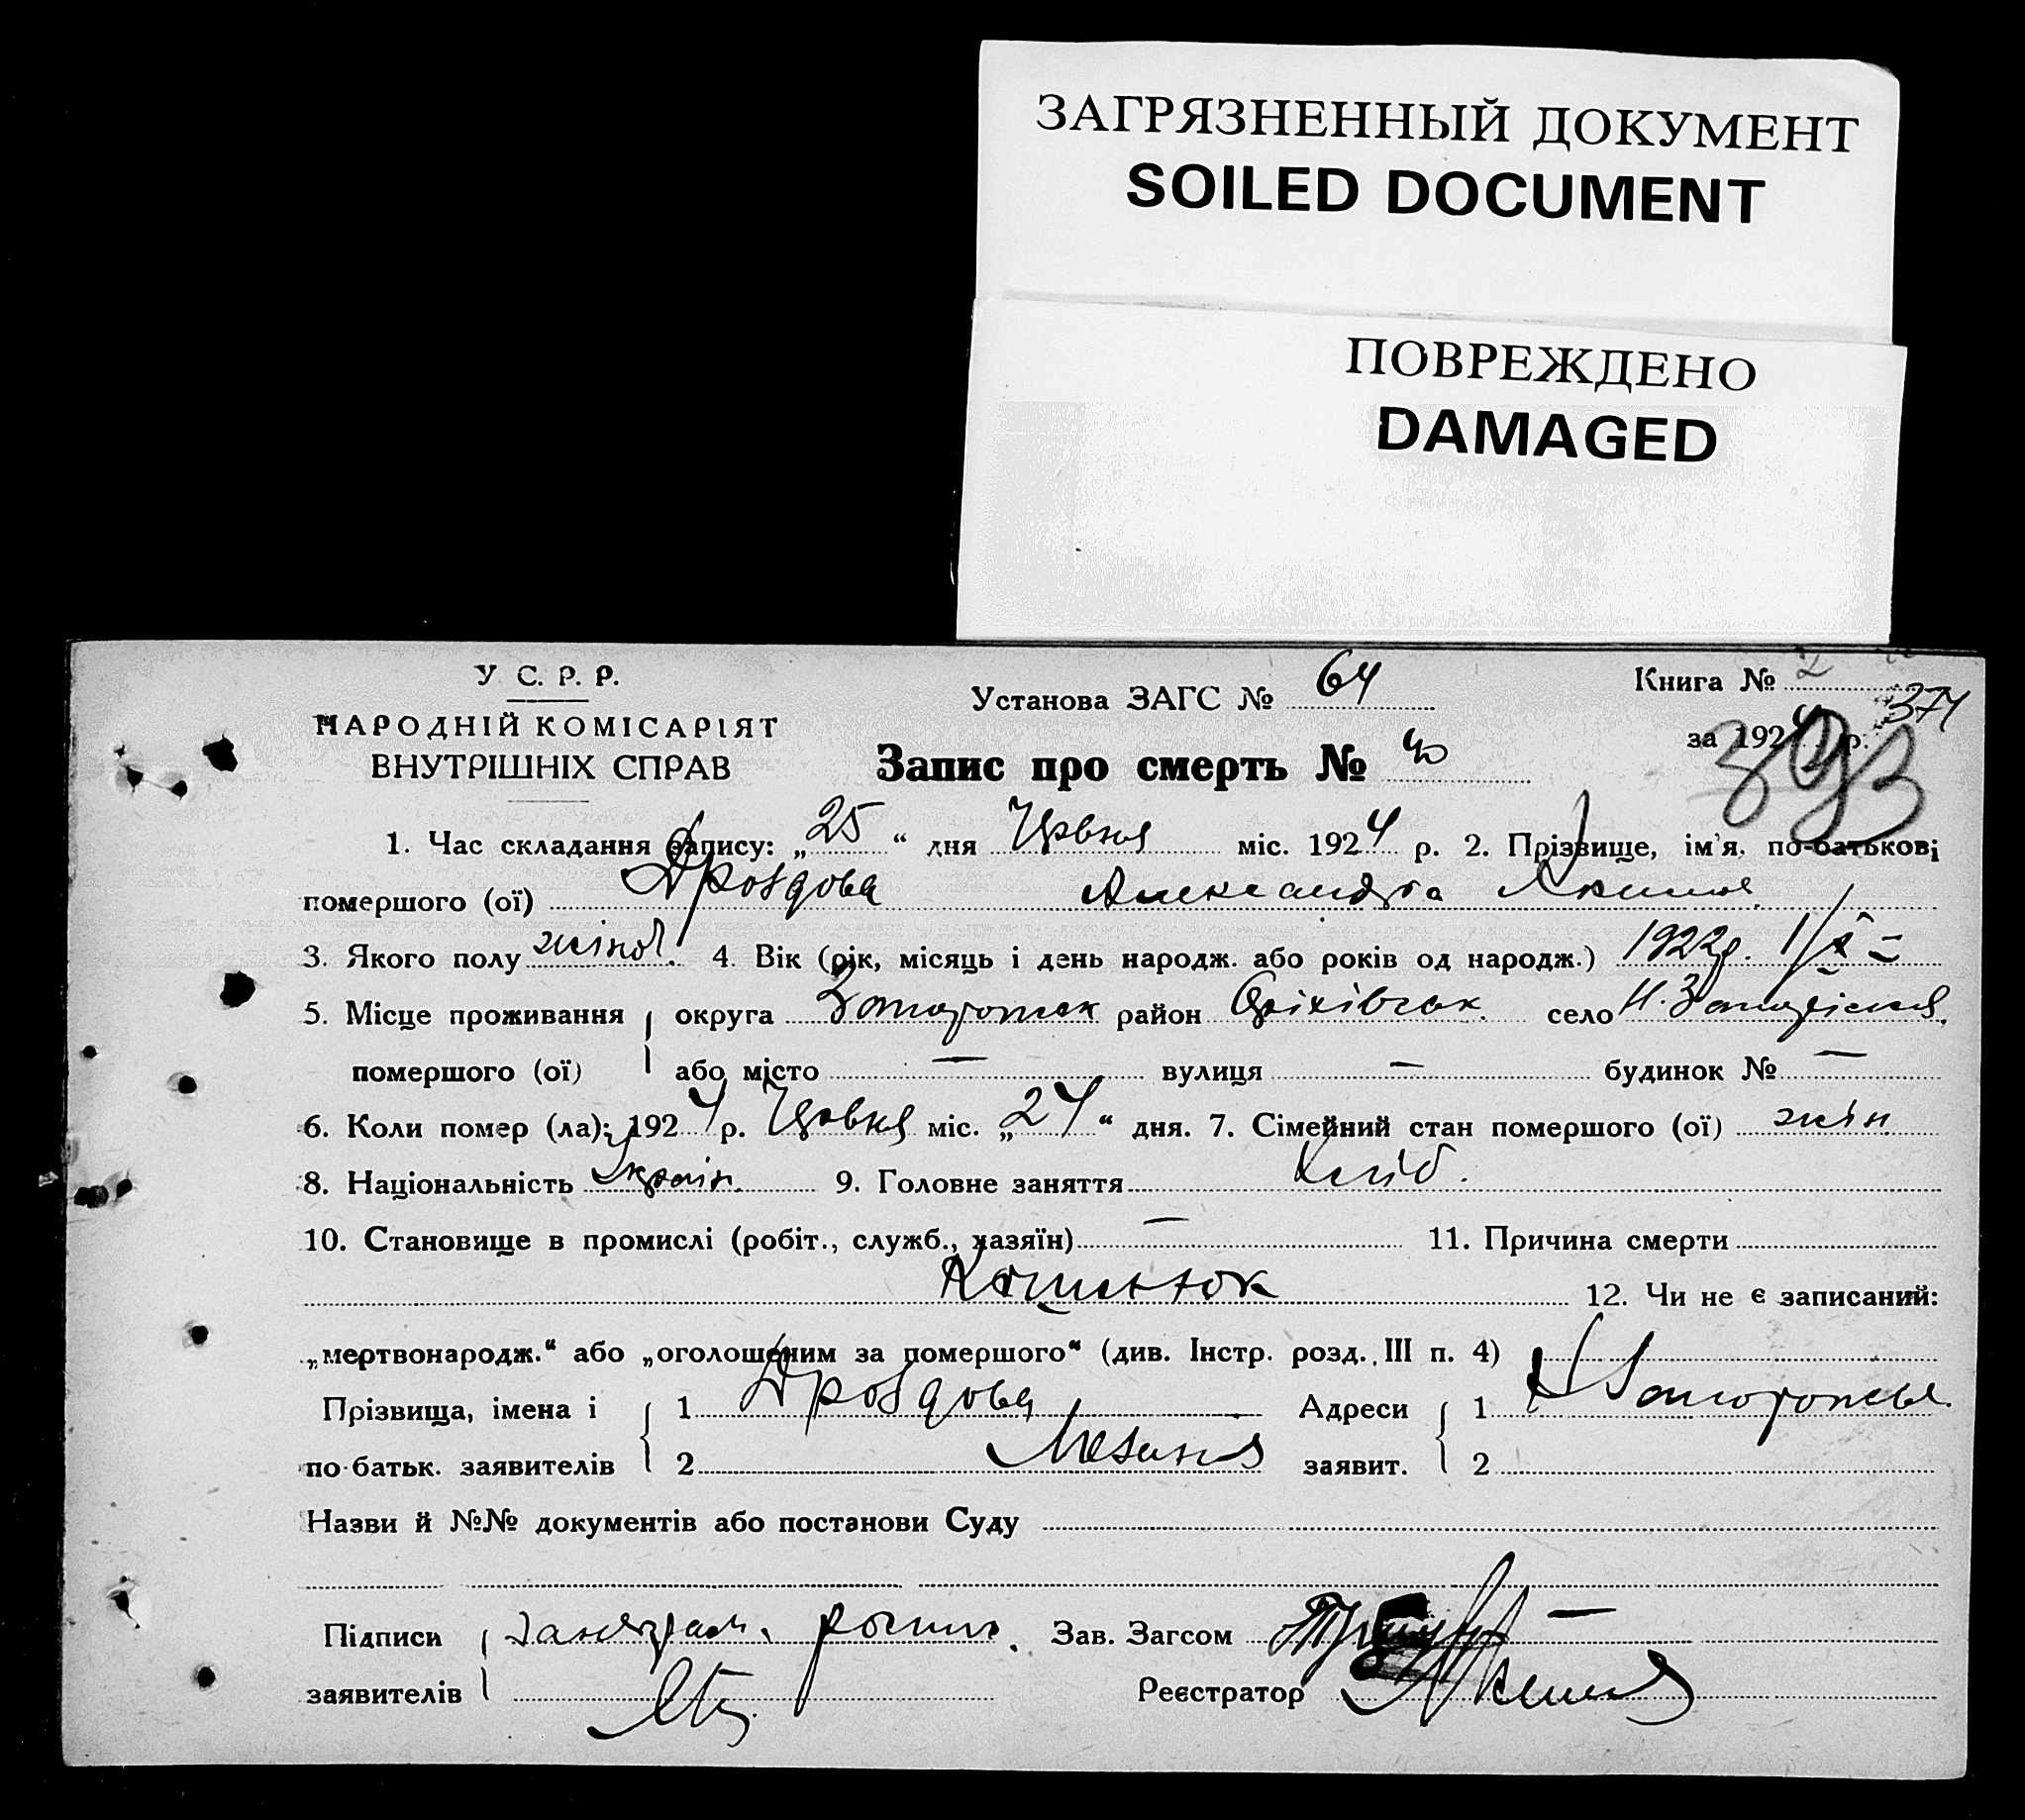 ЗАГРЯЗНЕННЫЙ ДОКУМЕНТ
SOILED DOCUMENT
ПОВРЕЖДЕНО
DAMAGED
У С. Р. Р.
НАРОДНІЙ КОМІСАРІЯТ
ВНУТРІШНІХ СПРАВ
Установа ЗАГС № 64
Книга № 2
374
за 1924 р.
Запис про смерть № 40
1. Час складання запису: „25“ дня Червня міс. 1924 р. 2. Прізвище, ім'я, по-батькові
помершого (ої) Дроздова Александра
3. Якого полу жіноч. 4. Вік (рік, місяць і день народж. або років од народж.) 1922р. 1/X
5. Місце проживання округа Запорожск район Оріхівськ. село
помершого (ої) або місто — вулиця — будинок № —
6. Коли помер (ла): 1924 р. Червня міс. „24“ дня. 7. Сімейний стан помершого (ої)
8. Національність Україн. 9. Головне заняття Хліб.
10. Становище в промислі (робіт., служб., хазяїн) — 11. Причина смерти
12. Чи не є записаний:
„мертвонародж.“ або „оголошеним за помершого“ (див. Інстр. розд. III п. 4)
Прізвища, імена і 1 Дроздова Адреси 1
по-батьк. заявителів 2 заявит. 2
Назви й №№ документів або постанови Суду
Підписи Зав. Загсом
заявителів Реєстратор